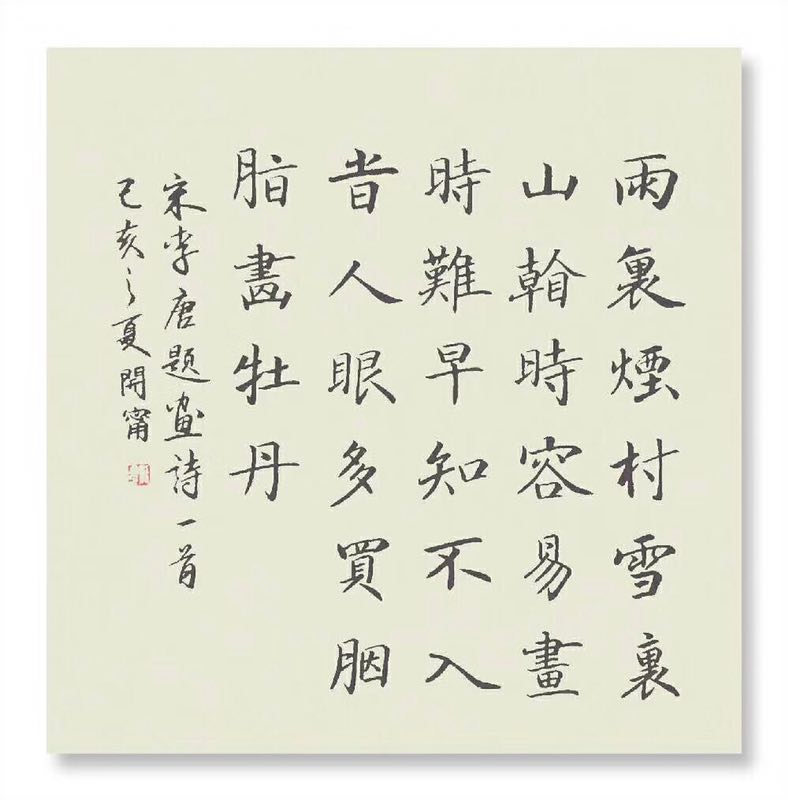 雨裏煙村雪裏
山時容易畫
時難早知不入
旹人眼多買胭
脂畵牡丹
宋李唐題畫詩一首
己亥之夏開甯